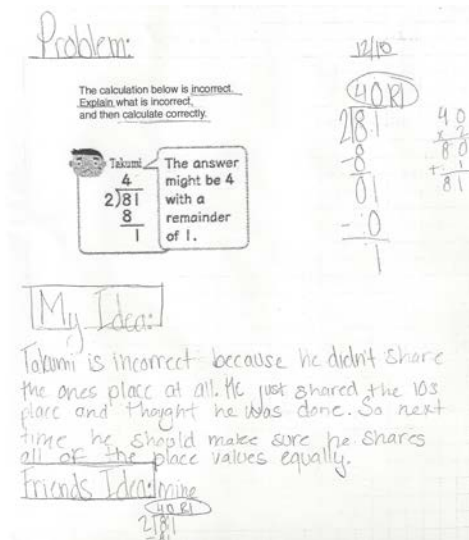 Problem:
12/10
The calculation below is incorrect.
Explain what is incorrect,
and then calculate correctly.
Takumi
4
2)81
8
1
The answer
might be 4
with a
remainder
of 1.
40 R1
2)81
-8
01
-0
1
40
x 2
80
+ 1
81
My Idea:
Takumi is incorrect because he didn't share
the ones place at all. He just shared the 10s
place and thought he was done. So next
time he should make sure he shares
all of the place values equally.
Friends Idea:
40 R1
2)81